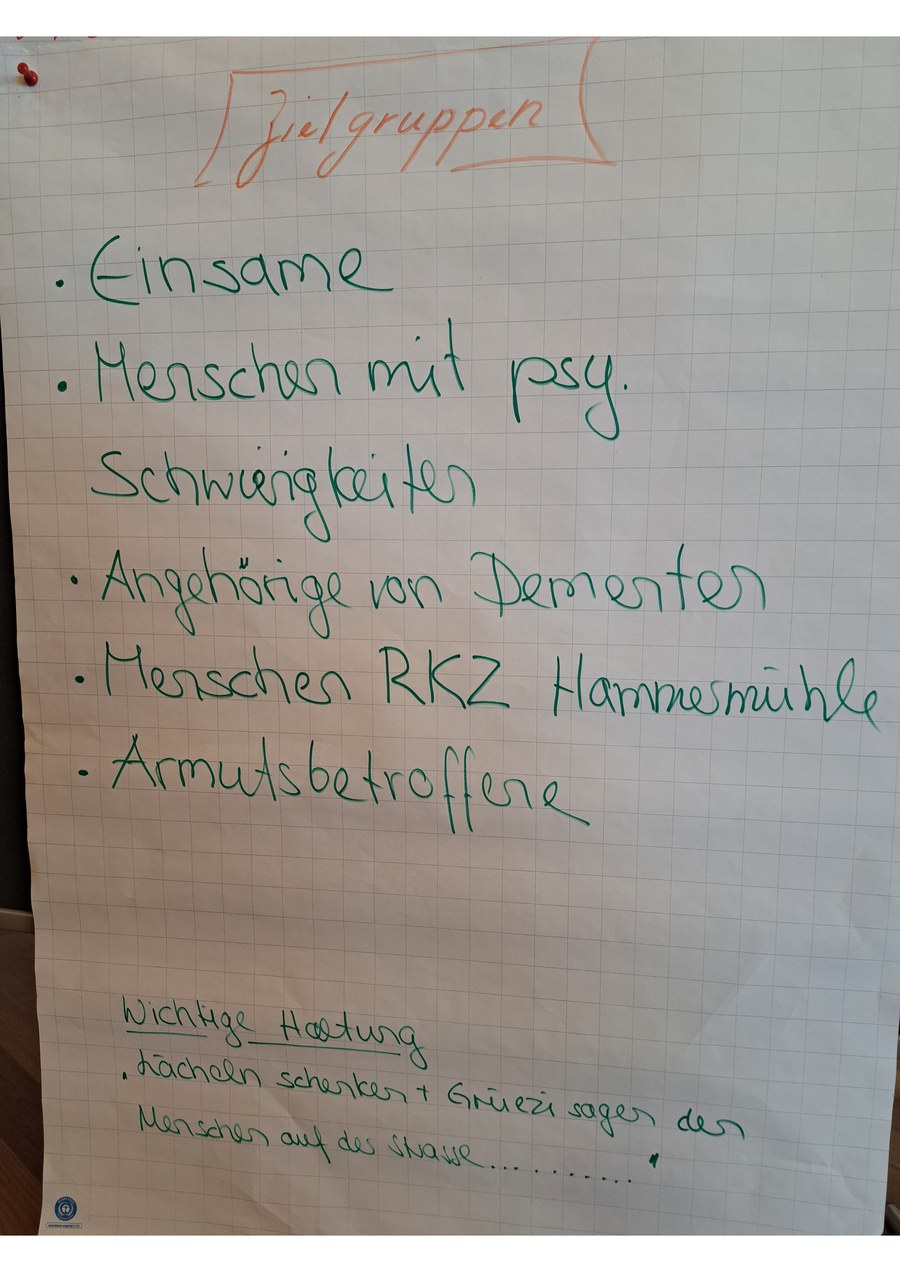 Zielgruppen
• Einsame
• Menschen mit psy.
Schwierigkeiten
• Angehörige von Dementen
• Menschen RKZ Hammermühle
• Armutsbetroffene
Wichtige Haltung
• Lächeln schenken + Grüezi sagen den
Menschen auf der Strasse............